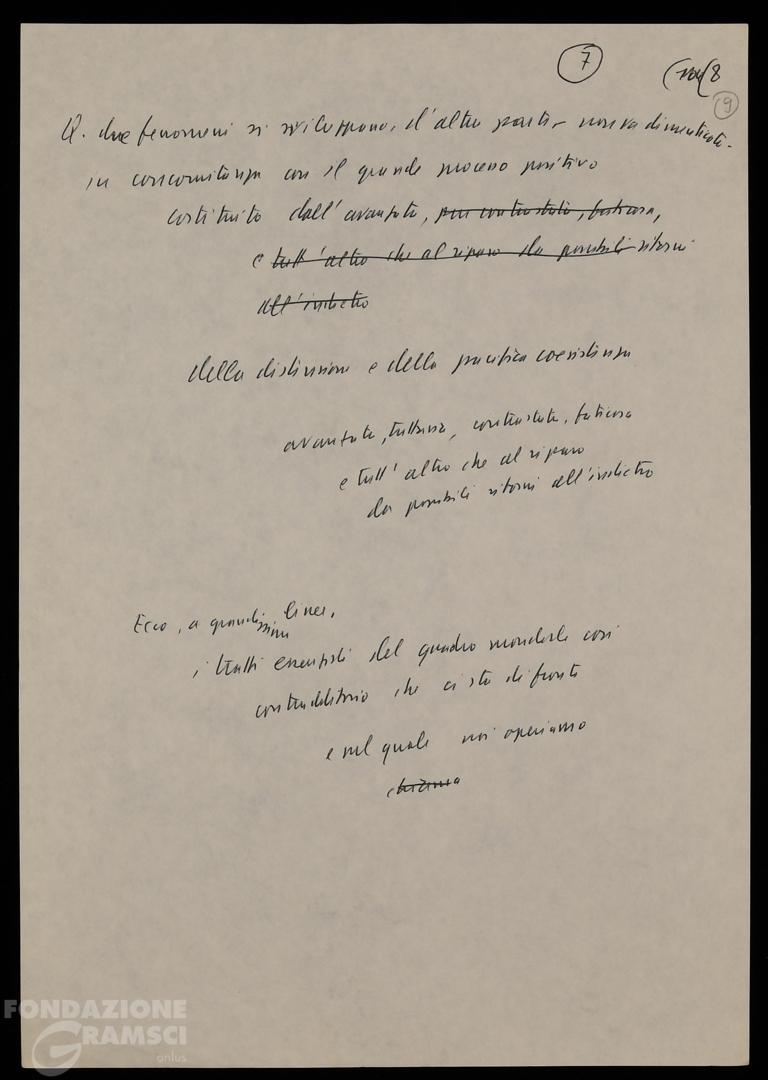 7
8
9
Q. due fenomeni si sviluppano, d'altra parte - non va dimenticato -
in concomitanza con il grande processo positivo
costituito dall'avanzata, pur contrastata, faticosa,
e tutt'altro che al riparo da possibili ritorni
all'indietro
della distensione e della pacifica coesistenza
avanzata, tuttavia, contrastata, faticosa
e tutt'altro che al riparo
da possibili ritorni all'indietro
Ecco, a grandissime linee,
i tratti essenziali del quadro mondiale così
contraddittorio che ci sta di fronte
e nel quale noi operiamo
FONDAZIONE
GRAMSCI
onlus